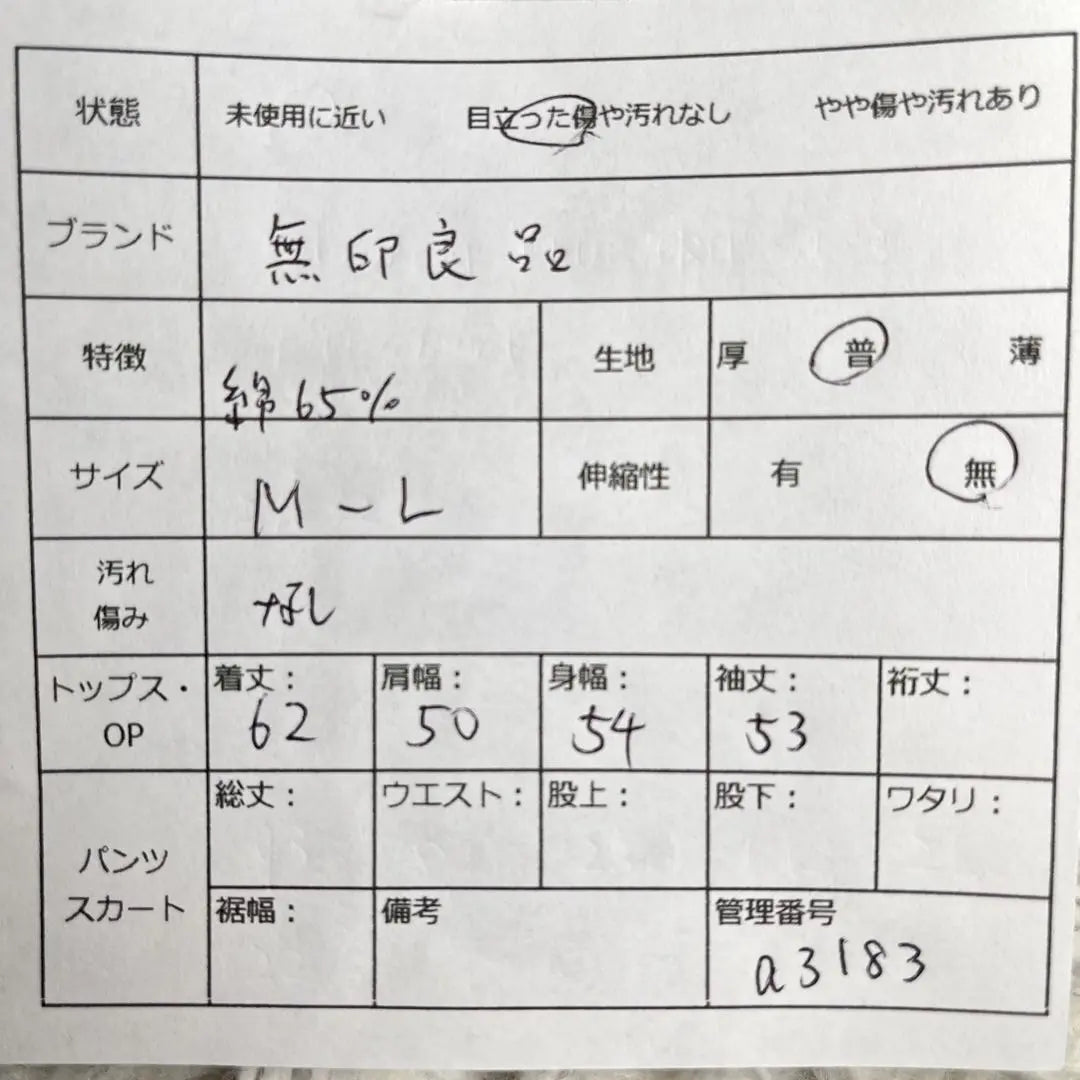 状態 未使用に近い 目立った傷や汚れなし やや傷や汚れあり
ブランド 無印良品
特徴 綿65% 生地 厚 普 薄
サイズ M-L 伸縮性 有 無
汚れ
傷み なし
トップス・
OP
着丈: 肩幅: 身幅: 袖丈: 裄丈:
62 50 54 53
パンツ
スカート
総丈: ウエスト: 股上: 股下: ワタリ:
裾幅: 備考 管理番号
a3183